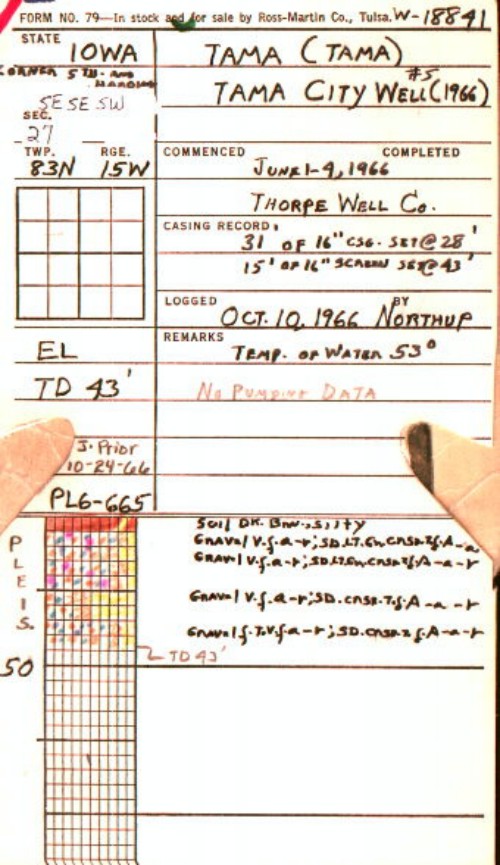 FORM NO. 79—In stock and for sale by Ross-Martin Co., Tulsa. W-18841
STATE
IOWA
TAMA (TAMA)
CORNER 5TH AND HARDING
TAMA CITY WELL #5 (1966)
SE SE SW
SEC.
27
TWP. RGE.
83N 15W
COMMENCED COMPLETED
JUNE 1-4, 1966
THORPE WELL CO.
CASING RECORD:
31' OF 16" CSG. SET@ 28'
15' OF 16" SCREEN SET@ 43'
LOGGED BY
OCT. 10, 1966 NORTHUP
REMARKS
TEMP. OF WATER 53°
EL
TD 43'
NO PUMPING DATA
J. Prior
10-24-66
PL6-665
PLEIS.
Soil DK. Brn., silty
Gravel V.f.-a-r; SD. LT. Gn, CRSR. Zf. A-a
Gravel V.f.-a-r; SD. LT. Gn, CRSR. Zf. A-a-r
Gravel V.f.-a-r; SD. CRSR-T.f. A-a-r
Gravel f.T.V.f-a-r; SD. CRSR. Zf. A-a-r
TD 43'
50